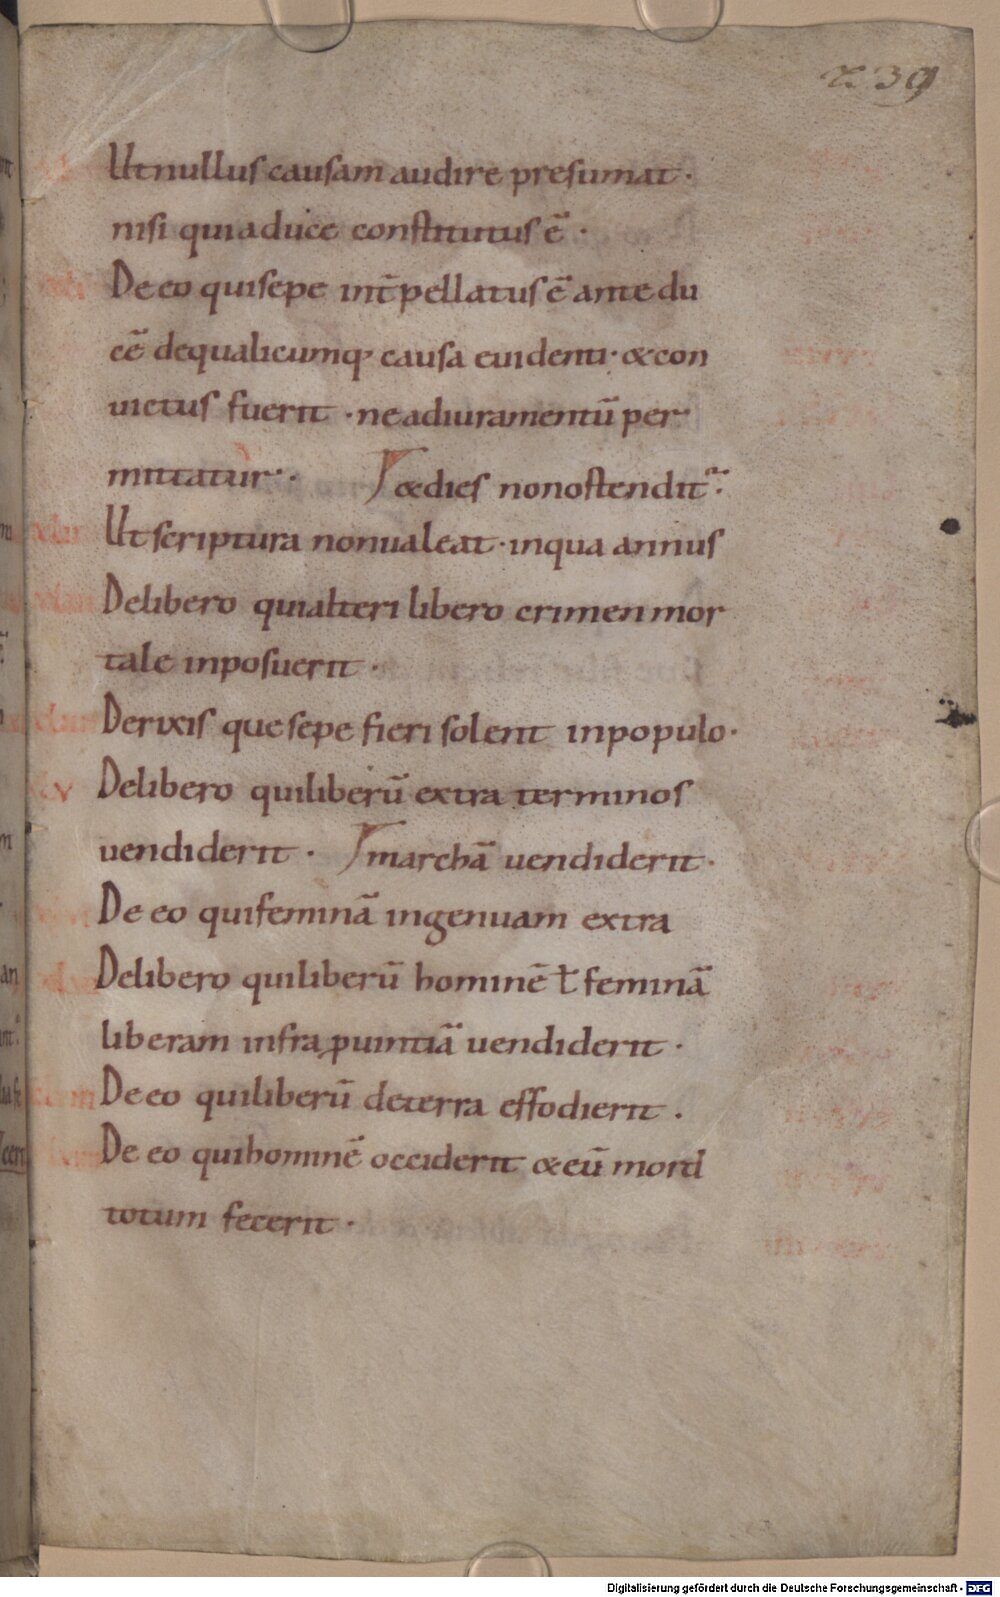 239
Ut nullus causam audire presumat·
nisi qui a duce constitutus ē·
De eo qui sepe int̄pellatus ē ante du
cē de qualicumq; causa euidenti· & con
uictus fuerit· ne ad iuramentū per
mittatur·· &dies non ostenditur·
Ut scriptura non ualeat· in qua annus
De libero qui alteri libero crimen mor
tale inposuerit·
De rixis que sepe fieri solent in populo·
xlv De libero qui liberū extra terminos
uendiderit· marchā uendiderit·
De eo qui feminā ingenuam extra
De libero qui liberū hominē ł feminā
liberam infra ꝓuintiā uendiderit·
De eo qui liberū de terra effodierit·
De eo qui hominē occiderit & eū mord
totum fecerit·
Digitalisierung gefördert durch die Deutsche Forschungsgemeinschaft - DFG